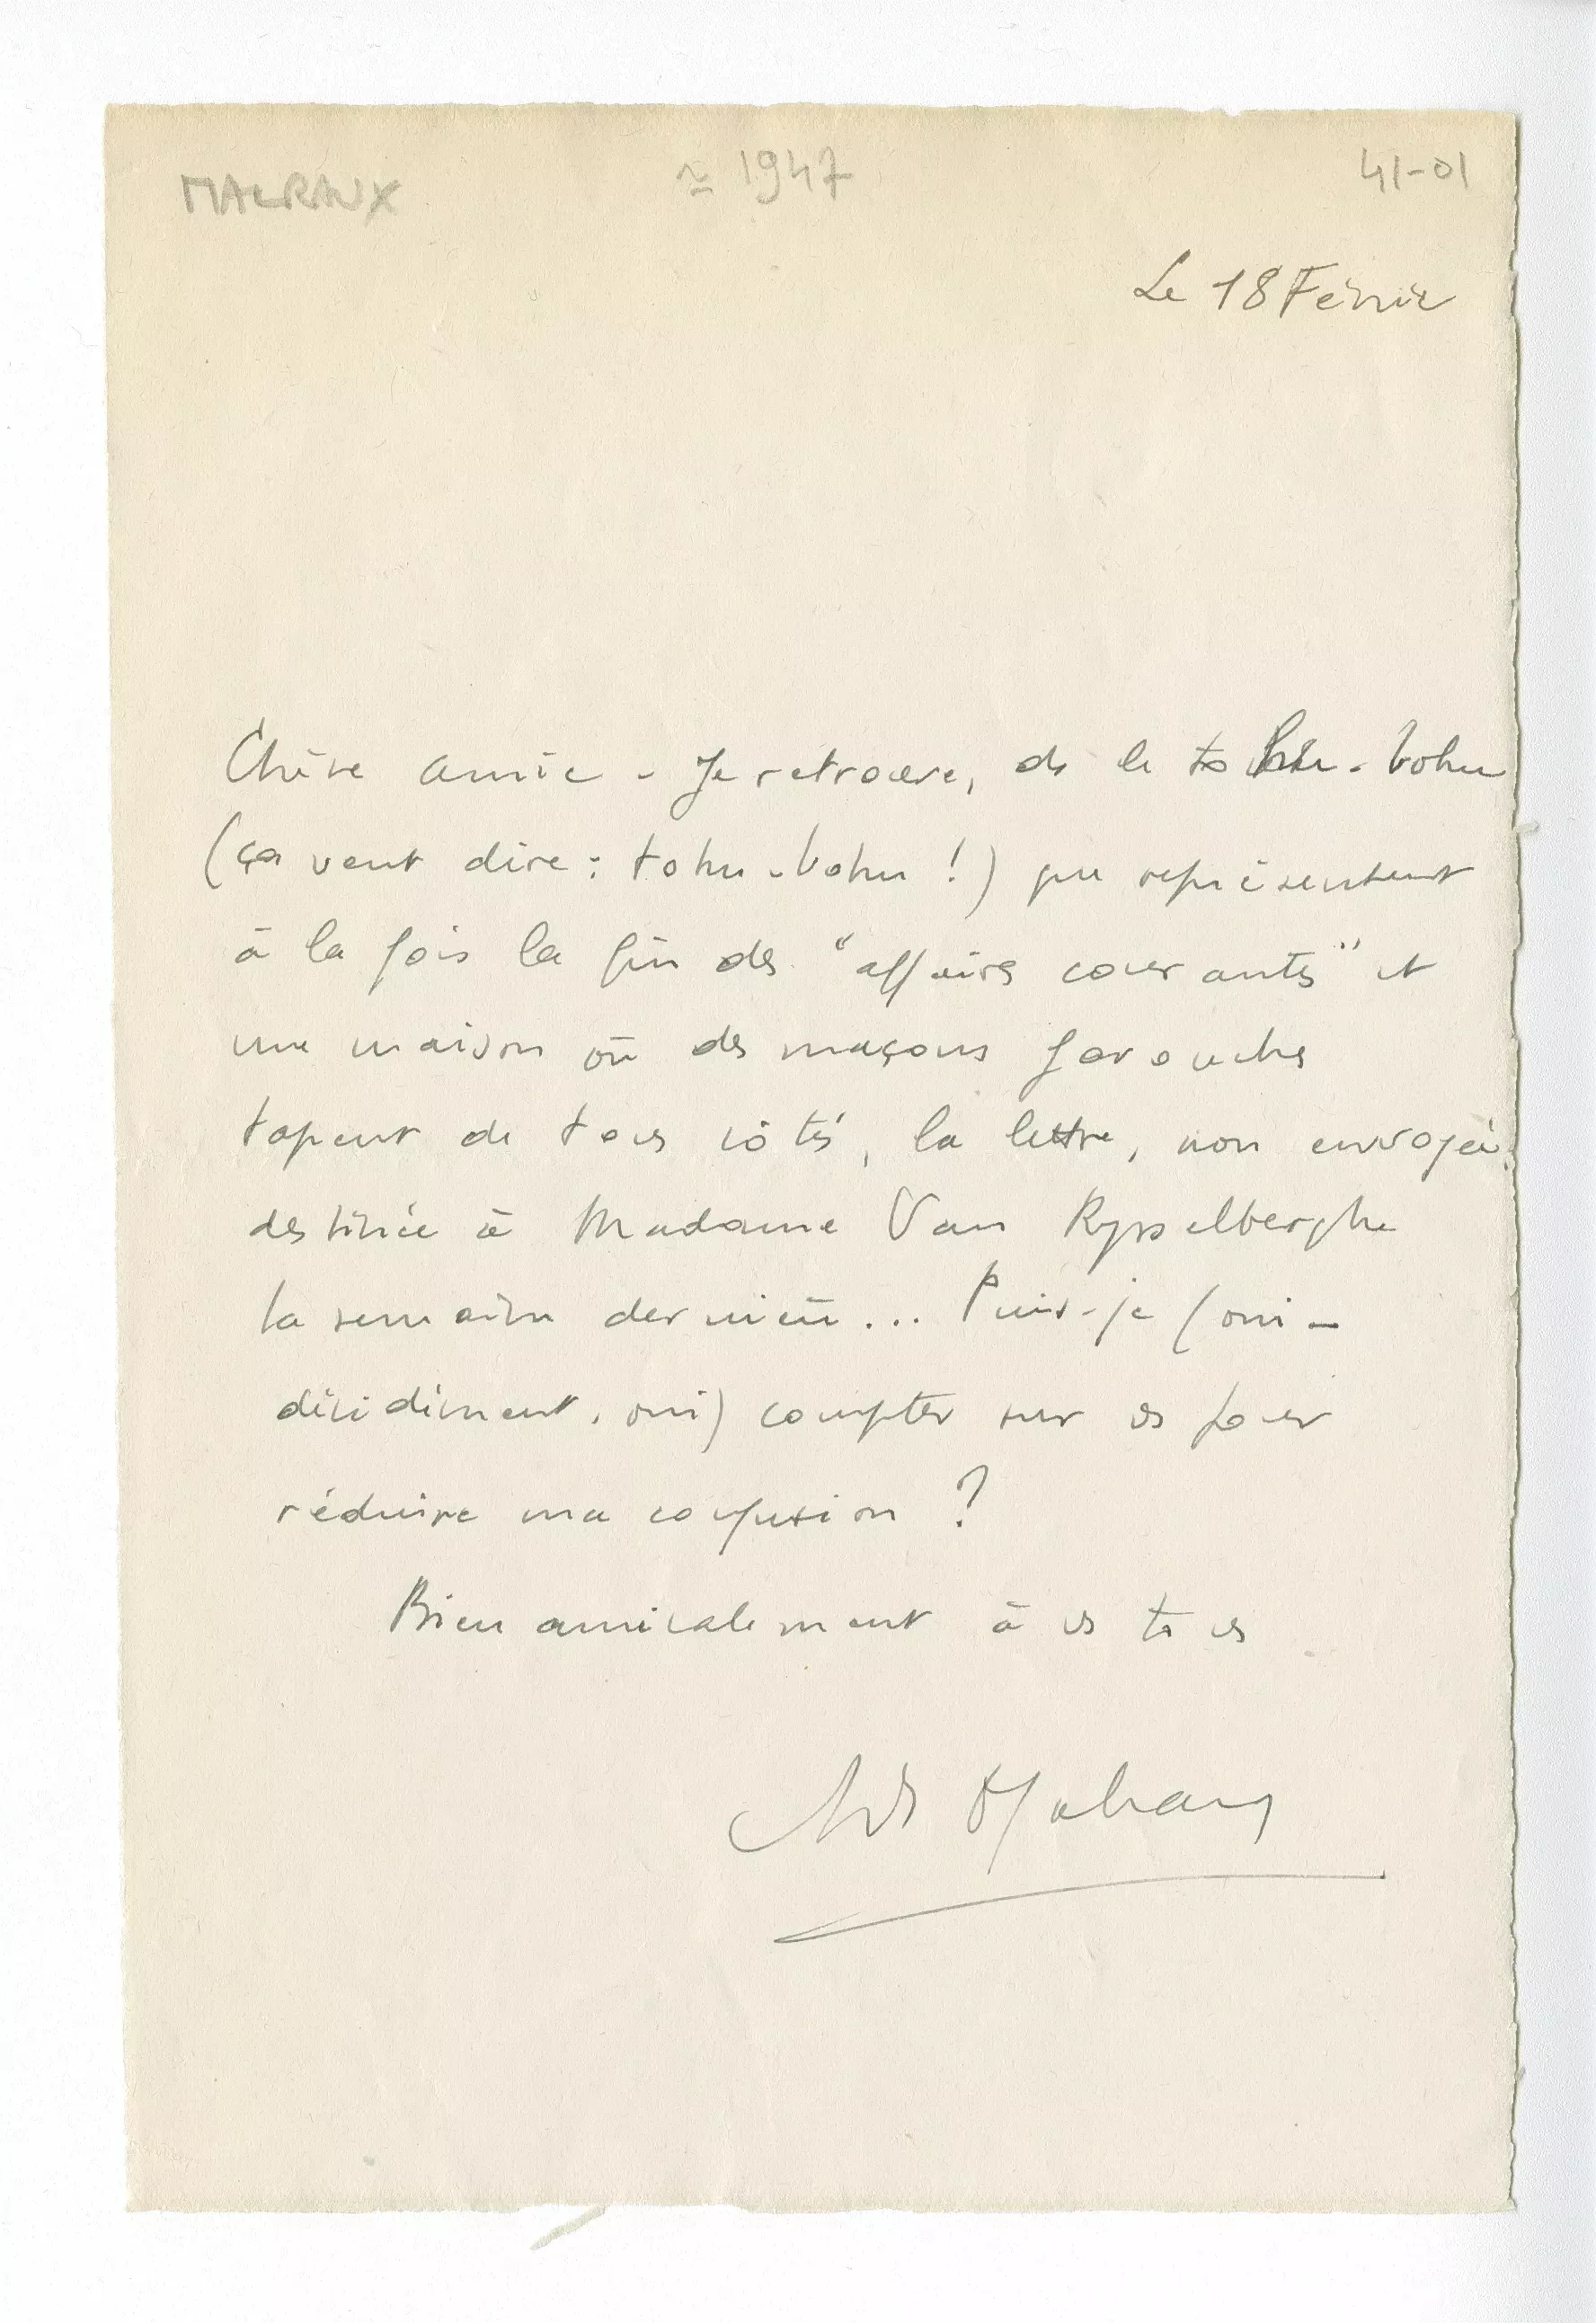 MALRAUX
≃ 1947
41-01
Le 18 Février
Chère amie - Je retrouve, ds le tohu-bohu
(ça veut dire : tohu-bohu !) que représentent
à la fois la fin des "affaires courantes" et
une maison où des maçons farouches
tapent de tous côtés, la lettre, non envoyée,
destinée à Madame Van Rysselberghe
la semaine dernière... Puis-je (oui -
décidément, oui) compter sur vs pour
réduire ma confusion ?
Bien amicalement à vs tous
André Malraux